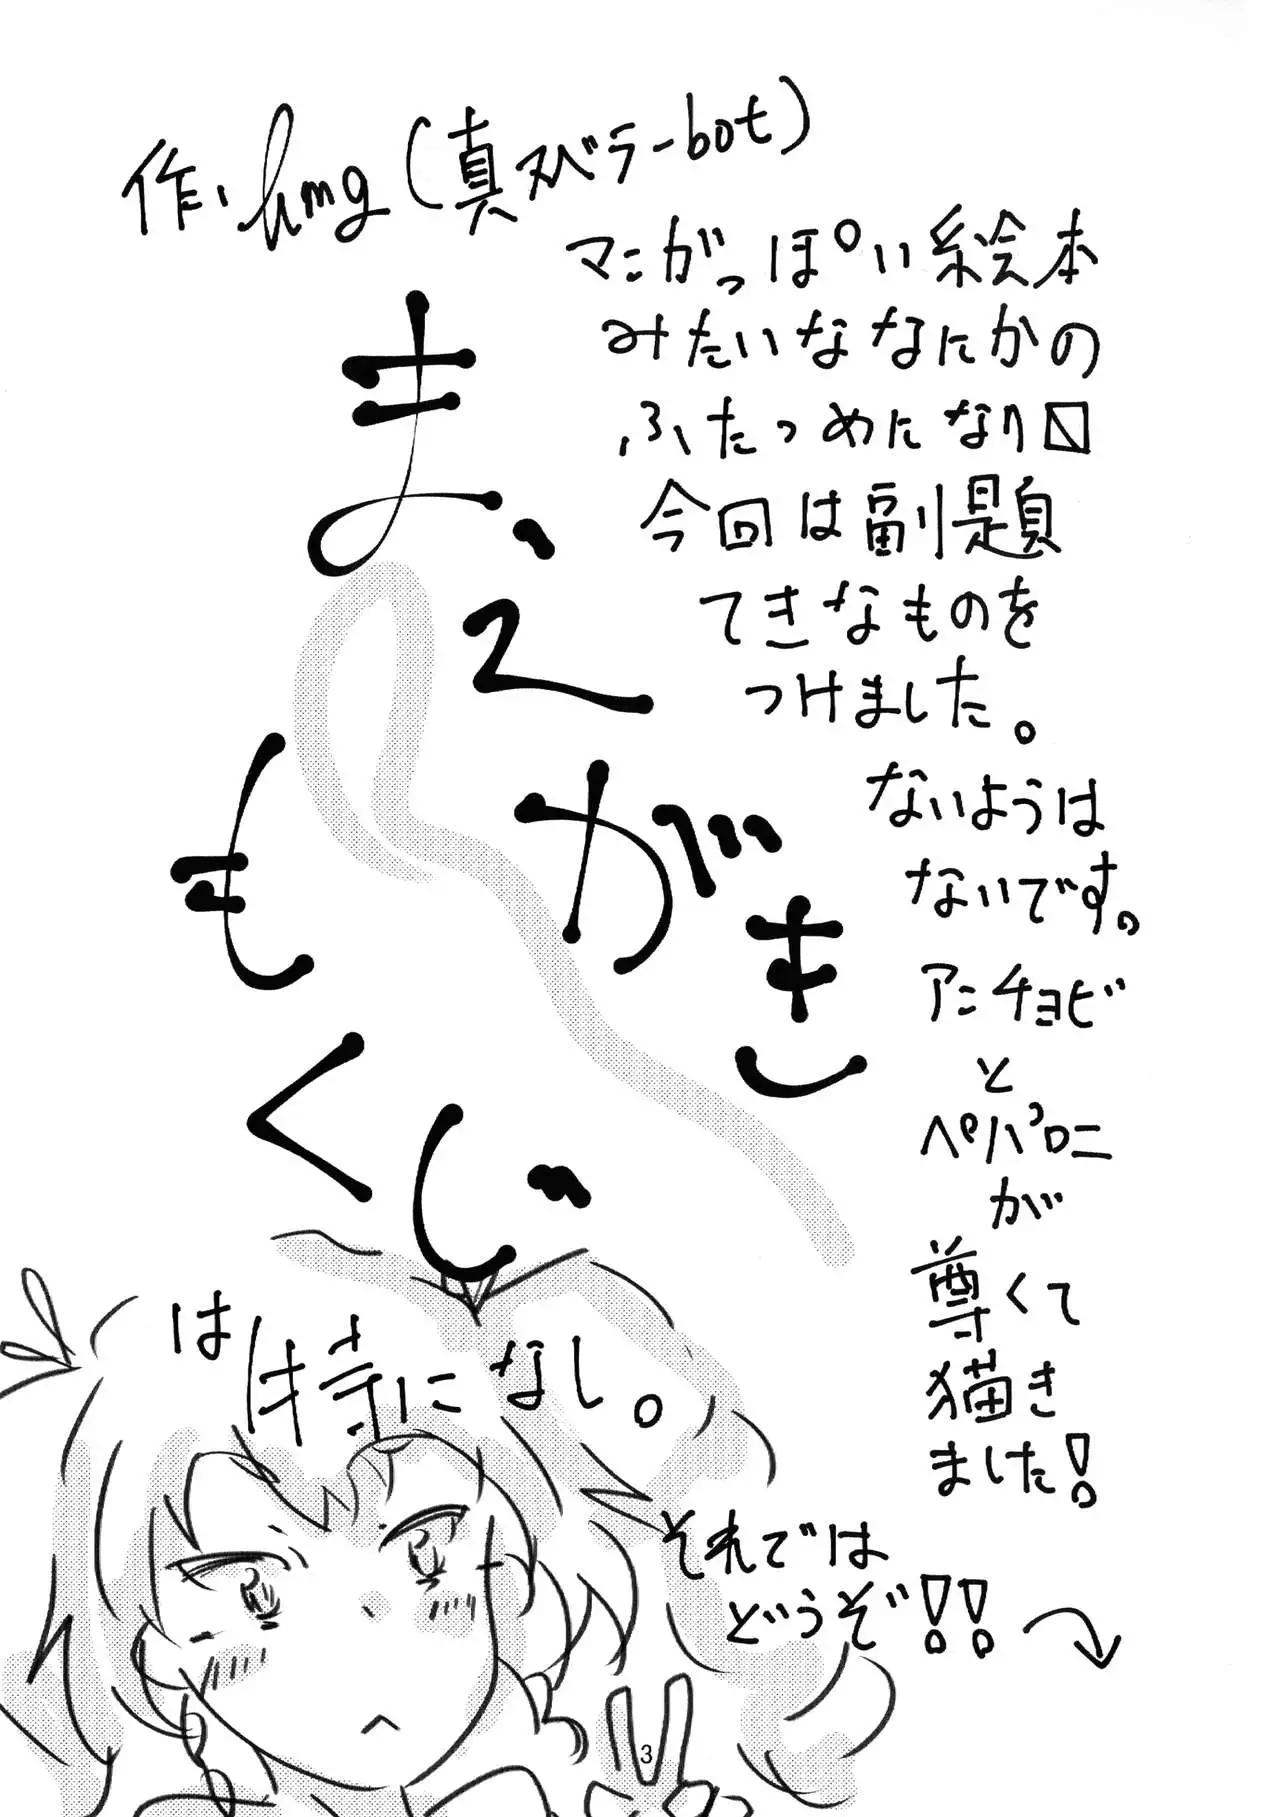 作、hmg(真ヌベラーbot)
まえがき
もくじ
は特になし。
マンガっぽい絵本
みたいななにかの
ふたつめになり〼
今回は副題
てきなものを
つけました。
ないようは
ないです。
アンチョビ
と
ペパロニ
が
尊くて
描き
ました!
それでは
どうぞ!!
3